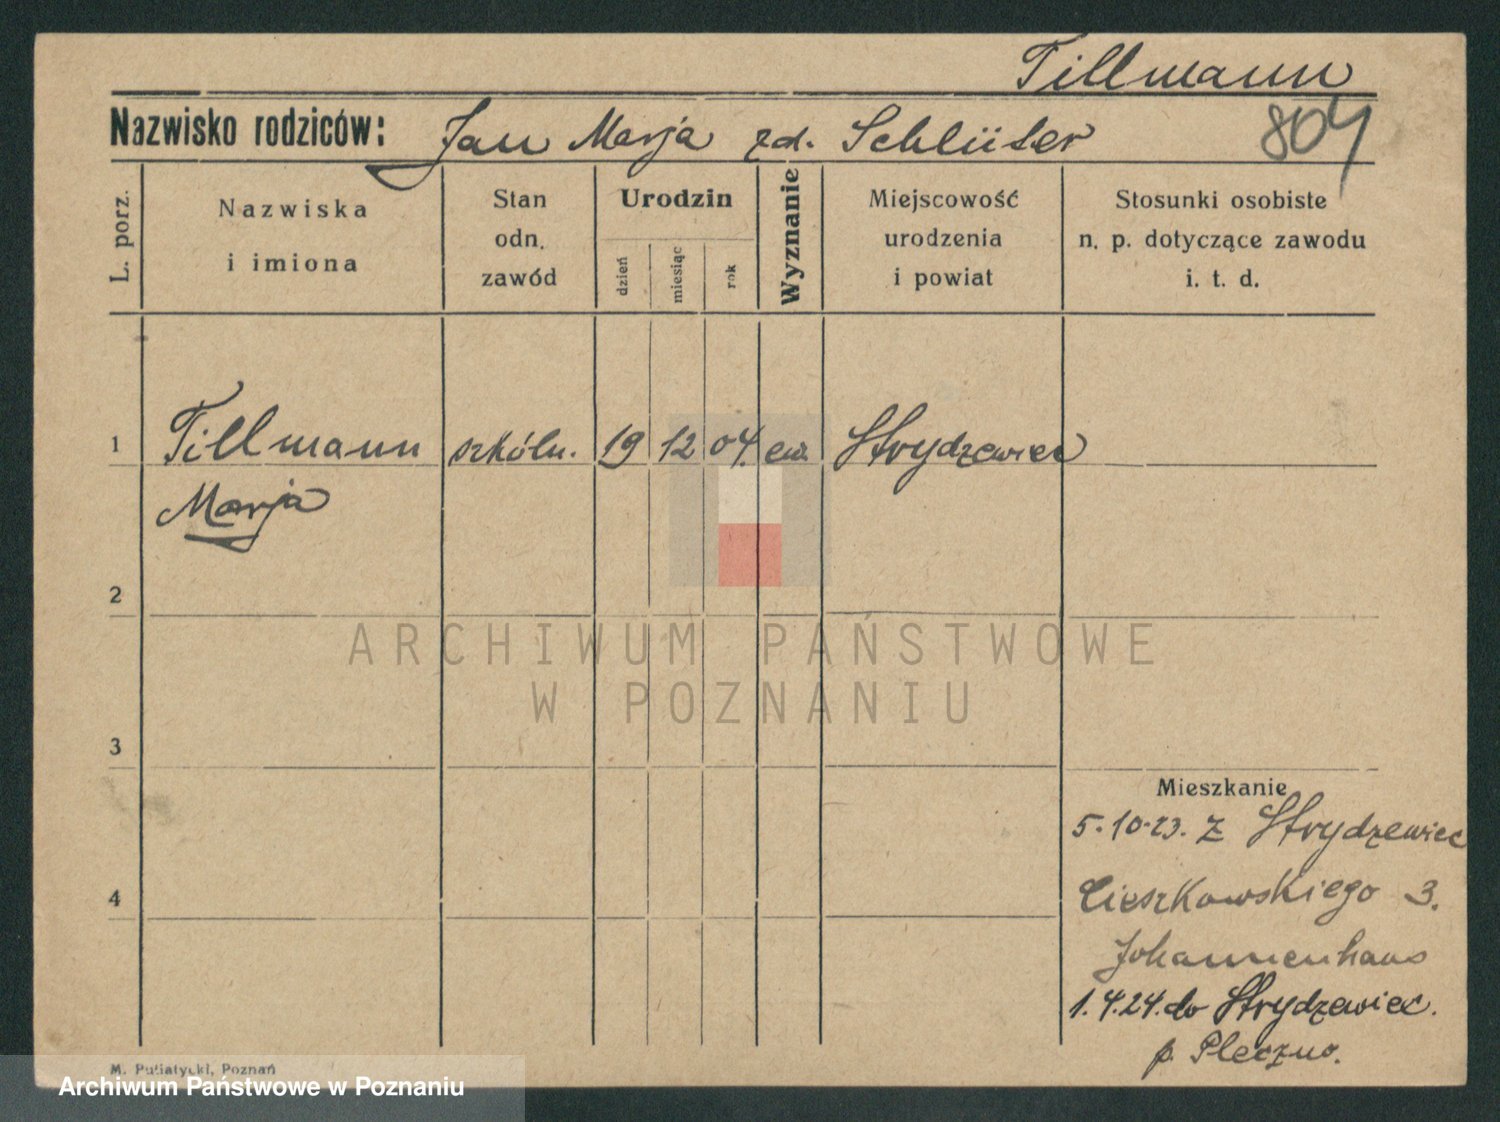 Tillmann
Nazwisko rodziców: Jan Marja zd. Schlüter 804
L. porz.
Nazwiska i imiona
Stan odn. zawód
Urodzin
dzień
miesiąc
rok
Wyznanie
Miejscowość urodzenia i powiat
Stosunki osobiste n. p. dotyczące zawodu i. t. d.
1 Tillmann szkóln. 19 12 04. ew. Strydzewiec
Marja
2
ARCHIWUM PAŃSTWOWE
W POZNANIU
3
Mieszkanie
5.10.23. z Strydzewiec
4 Cieszkowskiego 3.
Johannenhaus
1.4.24. do Strydzewiec.
p. Pleczno.
M. Putiatycki, Poznań
Archiwum Państwowe w Poznaniu